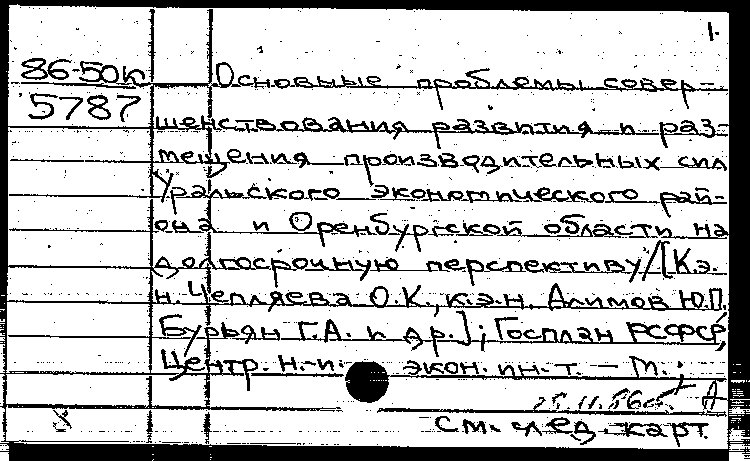 1.
86-50к Основные проблемы совер-
5787
шенствования развития и раз-
мещения производительных сил
Уральского экономического рай-
она и Оренбургской области на
долгосрочную перспективу/[К.э.
н. Чепляева О.К., к.э.н. Алимов Ю.П.
Бурьян Г.А. и др.]; Госплан РСФСР,
Центр. н.-и. экон. ин-т. — М.;
25.11.86 А
См. след. карт.